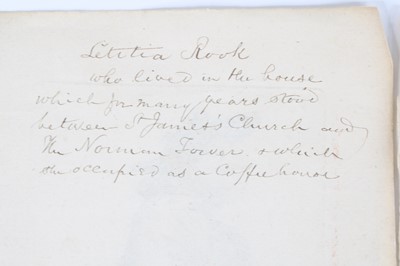 Letitia Rook
who lived in the house
which for many years stood
between St James's Church and
the Norman Tower, & which
she occupied as a Coffee house